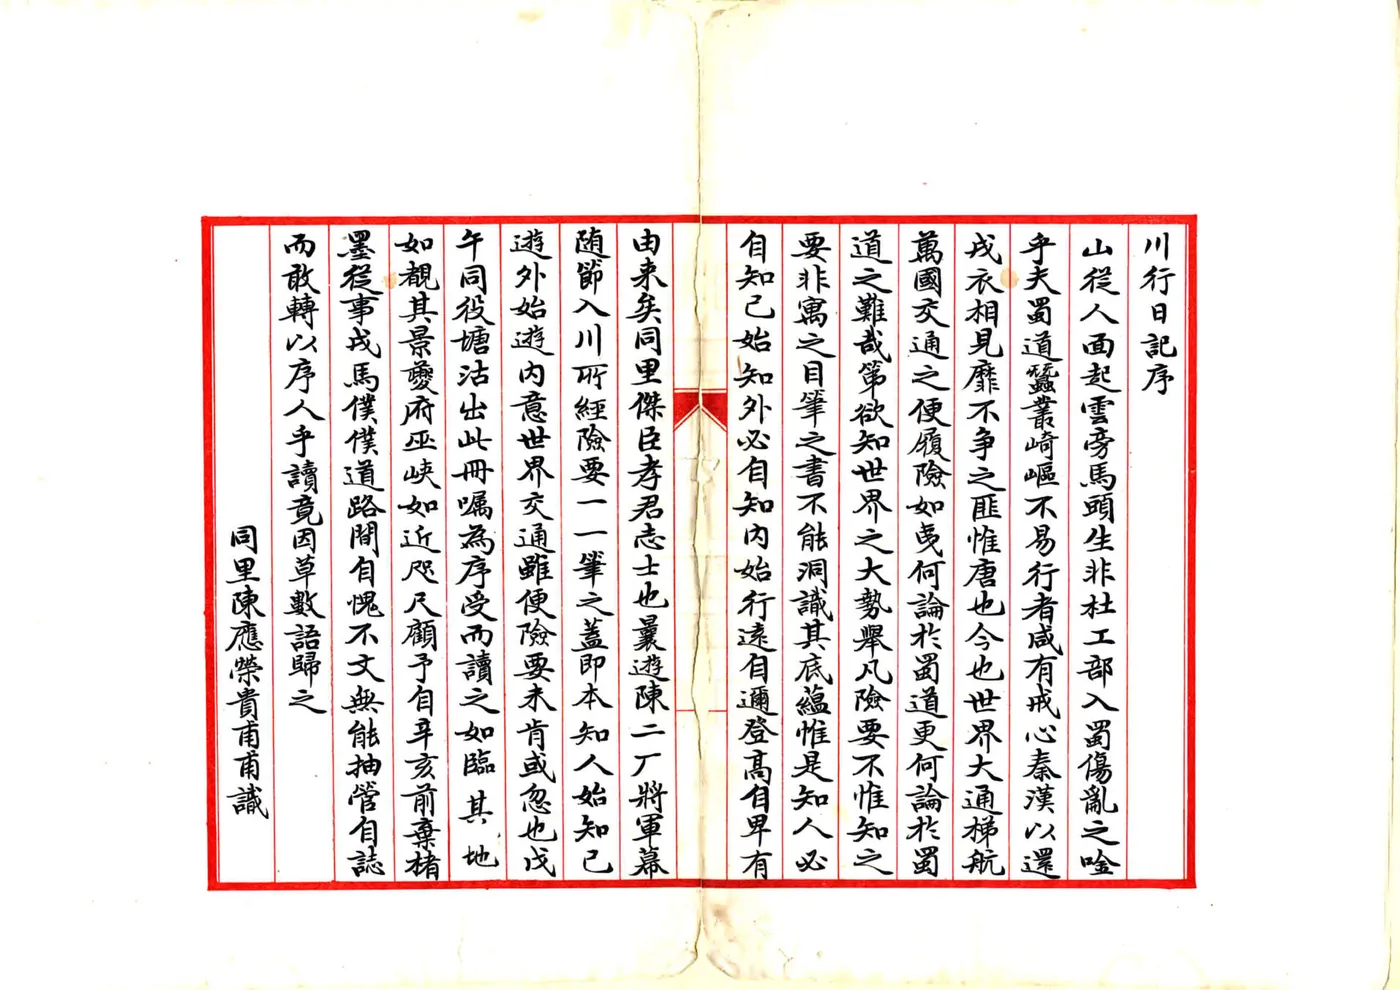 川行日記序
山從人面起雲旁馬頭生非杜工部入蜀傷亂之唫
乎夫蜀道蠶叢崎嶇不易行者咸有戒心秦漢以還
戎衣相見靡不争之匪惟唐也今也世界大通梯航
萬國交通之便履險如夷何論於蜀道更何論於蜀
道之難哉第欲知世界之大勢舉凡險要不惟知之
要非寓之目筆之書不能洞識其底蘊惟是知人必
自知己始知外必自知內始行遠自邇登高自卑有
由来矣同里傑臣孝君志士也曩遊陳二厂將軍幕
随節入川所經險要一一筆之蓋即本知人始知己
遊外始遊內意世界交通雖便險要未肯或忽也戊
午同役塘沽出此冊嘱為序受而讀之如臨其地
如覩其景夔府巫峽如近咫尺顧予自辛亥前棄楮
墨從事戎馬僕僕道路間自愧不文無能抽管自誌
而敢轉以序人乎讀竟因草數語歸之
同里陳應榮貴甫甫識